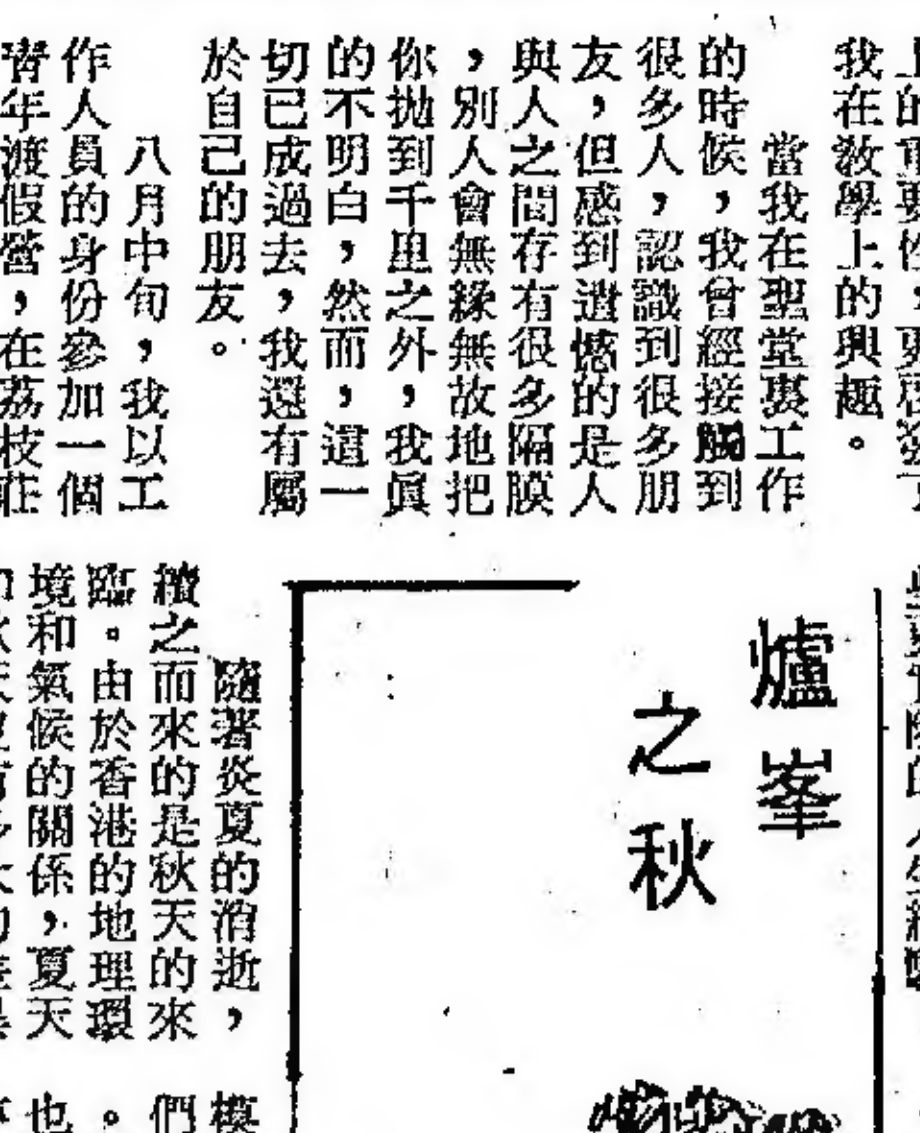 上的重要性，更啓發了
我在教學上的興趣。
當我在聖堂裏工作
的時候，我曾經接觸到
很多人，認識到很多朋
友，但感到遺憾的是人
與人之間存有很多隔膜
，別人會無緣無故地把
你拋到千里之外，我眞
的不明白，然而，這一
切已成過去，我還有屬
於自己的朋友。
八月中旬，我以工
作人員的身份參加一個
青年渡假營，在荔枝莊
爐峯
之秋
隨著炎夏的消逝，
續之而來的是秋天的來
臨。由於香港的地理環
境和氣候的關係，夏天
模
們
。
也